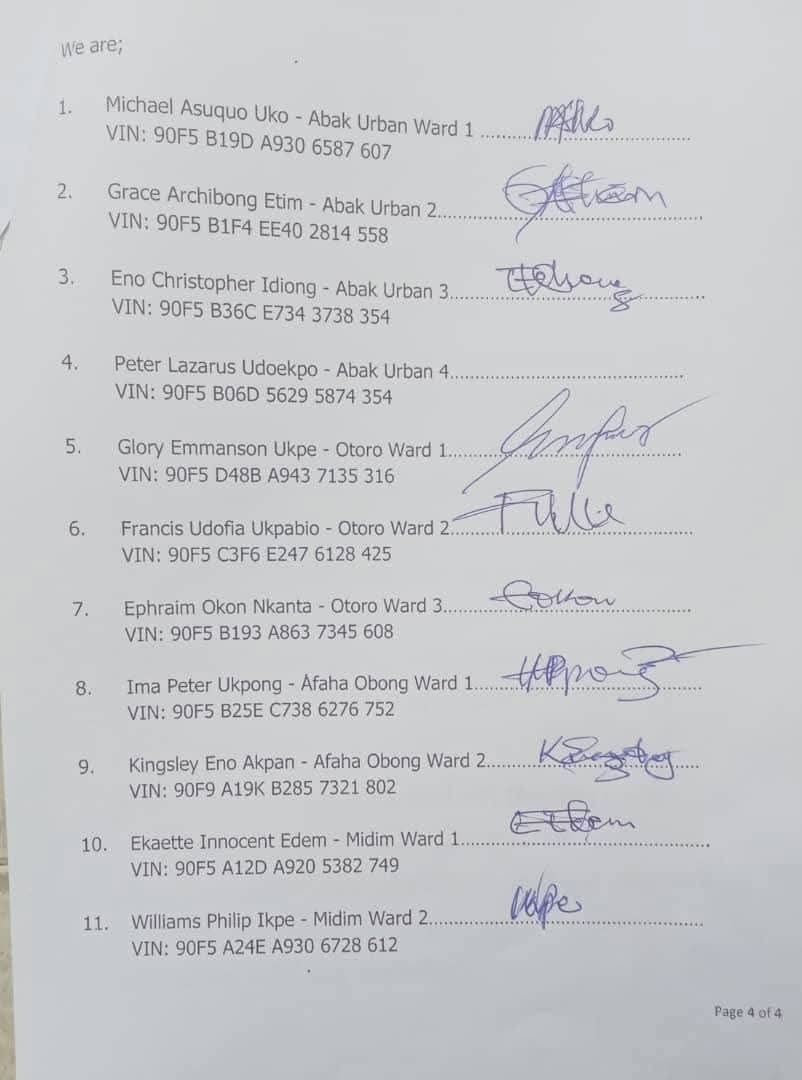 We are;
1. Michael Asuquo Uko - Abak Urban Ward 1 ..............................
VIN: 90F5 B19D A930 6587 607
2. Grace Archibong Etim - Abak Urban 2..............................
VIN: 90F5 B1F4 EE40 2814 558
3. Eno Christopher Idiong - Abak Urban 3..............................
VIN: 90F5 B36C E734 3738 354
4. Peter Lazarus Udoekpo - Abak Urban 4..............................
VIN: 90F5 B06D 5629 5874 354
5. Glory Emmanson Ukpe - Otoro Ward 1..............................
VIN: 90F5 D48B A943 7135 316
6. Francis Udofia Ukpabio - Otoro Ward 2..............................
VIN: 90F5 C3F6 E247 6128 425
7. Ephraim Okon Nkanta - Otoro Ward 3..............................
VIN: 90F5 B193 A863 7345 608
8. Ima Peter Ukpong - Afaha Obong Ward 1..............................
VIN: 90F5 B25E C738 6276 752
9. Kingsley Eno Akpan - Afaha Obong Ward 2..............................
VIN: 90F9 A19K B285 7321 802
10. Ekaette Innocent Edem - Midim Ward 1..............................
VIN: 90F5 A12D A920 5382 749
11. Williams Philip Ikpe - Midim Ward 2..............................
VIN: 90F5 A24E A930 6728 612
Page 4 of 4